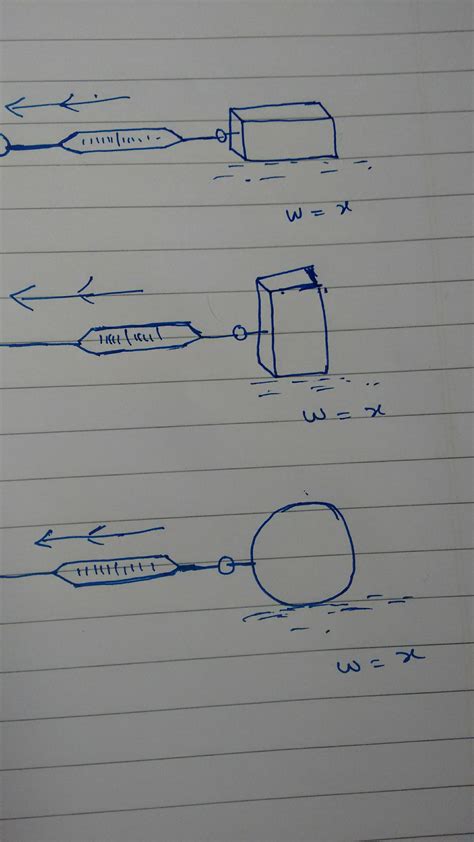 w = x
w = x
w = x